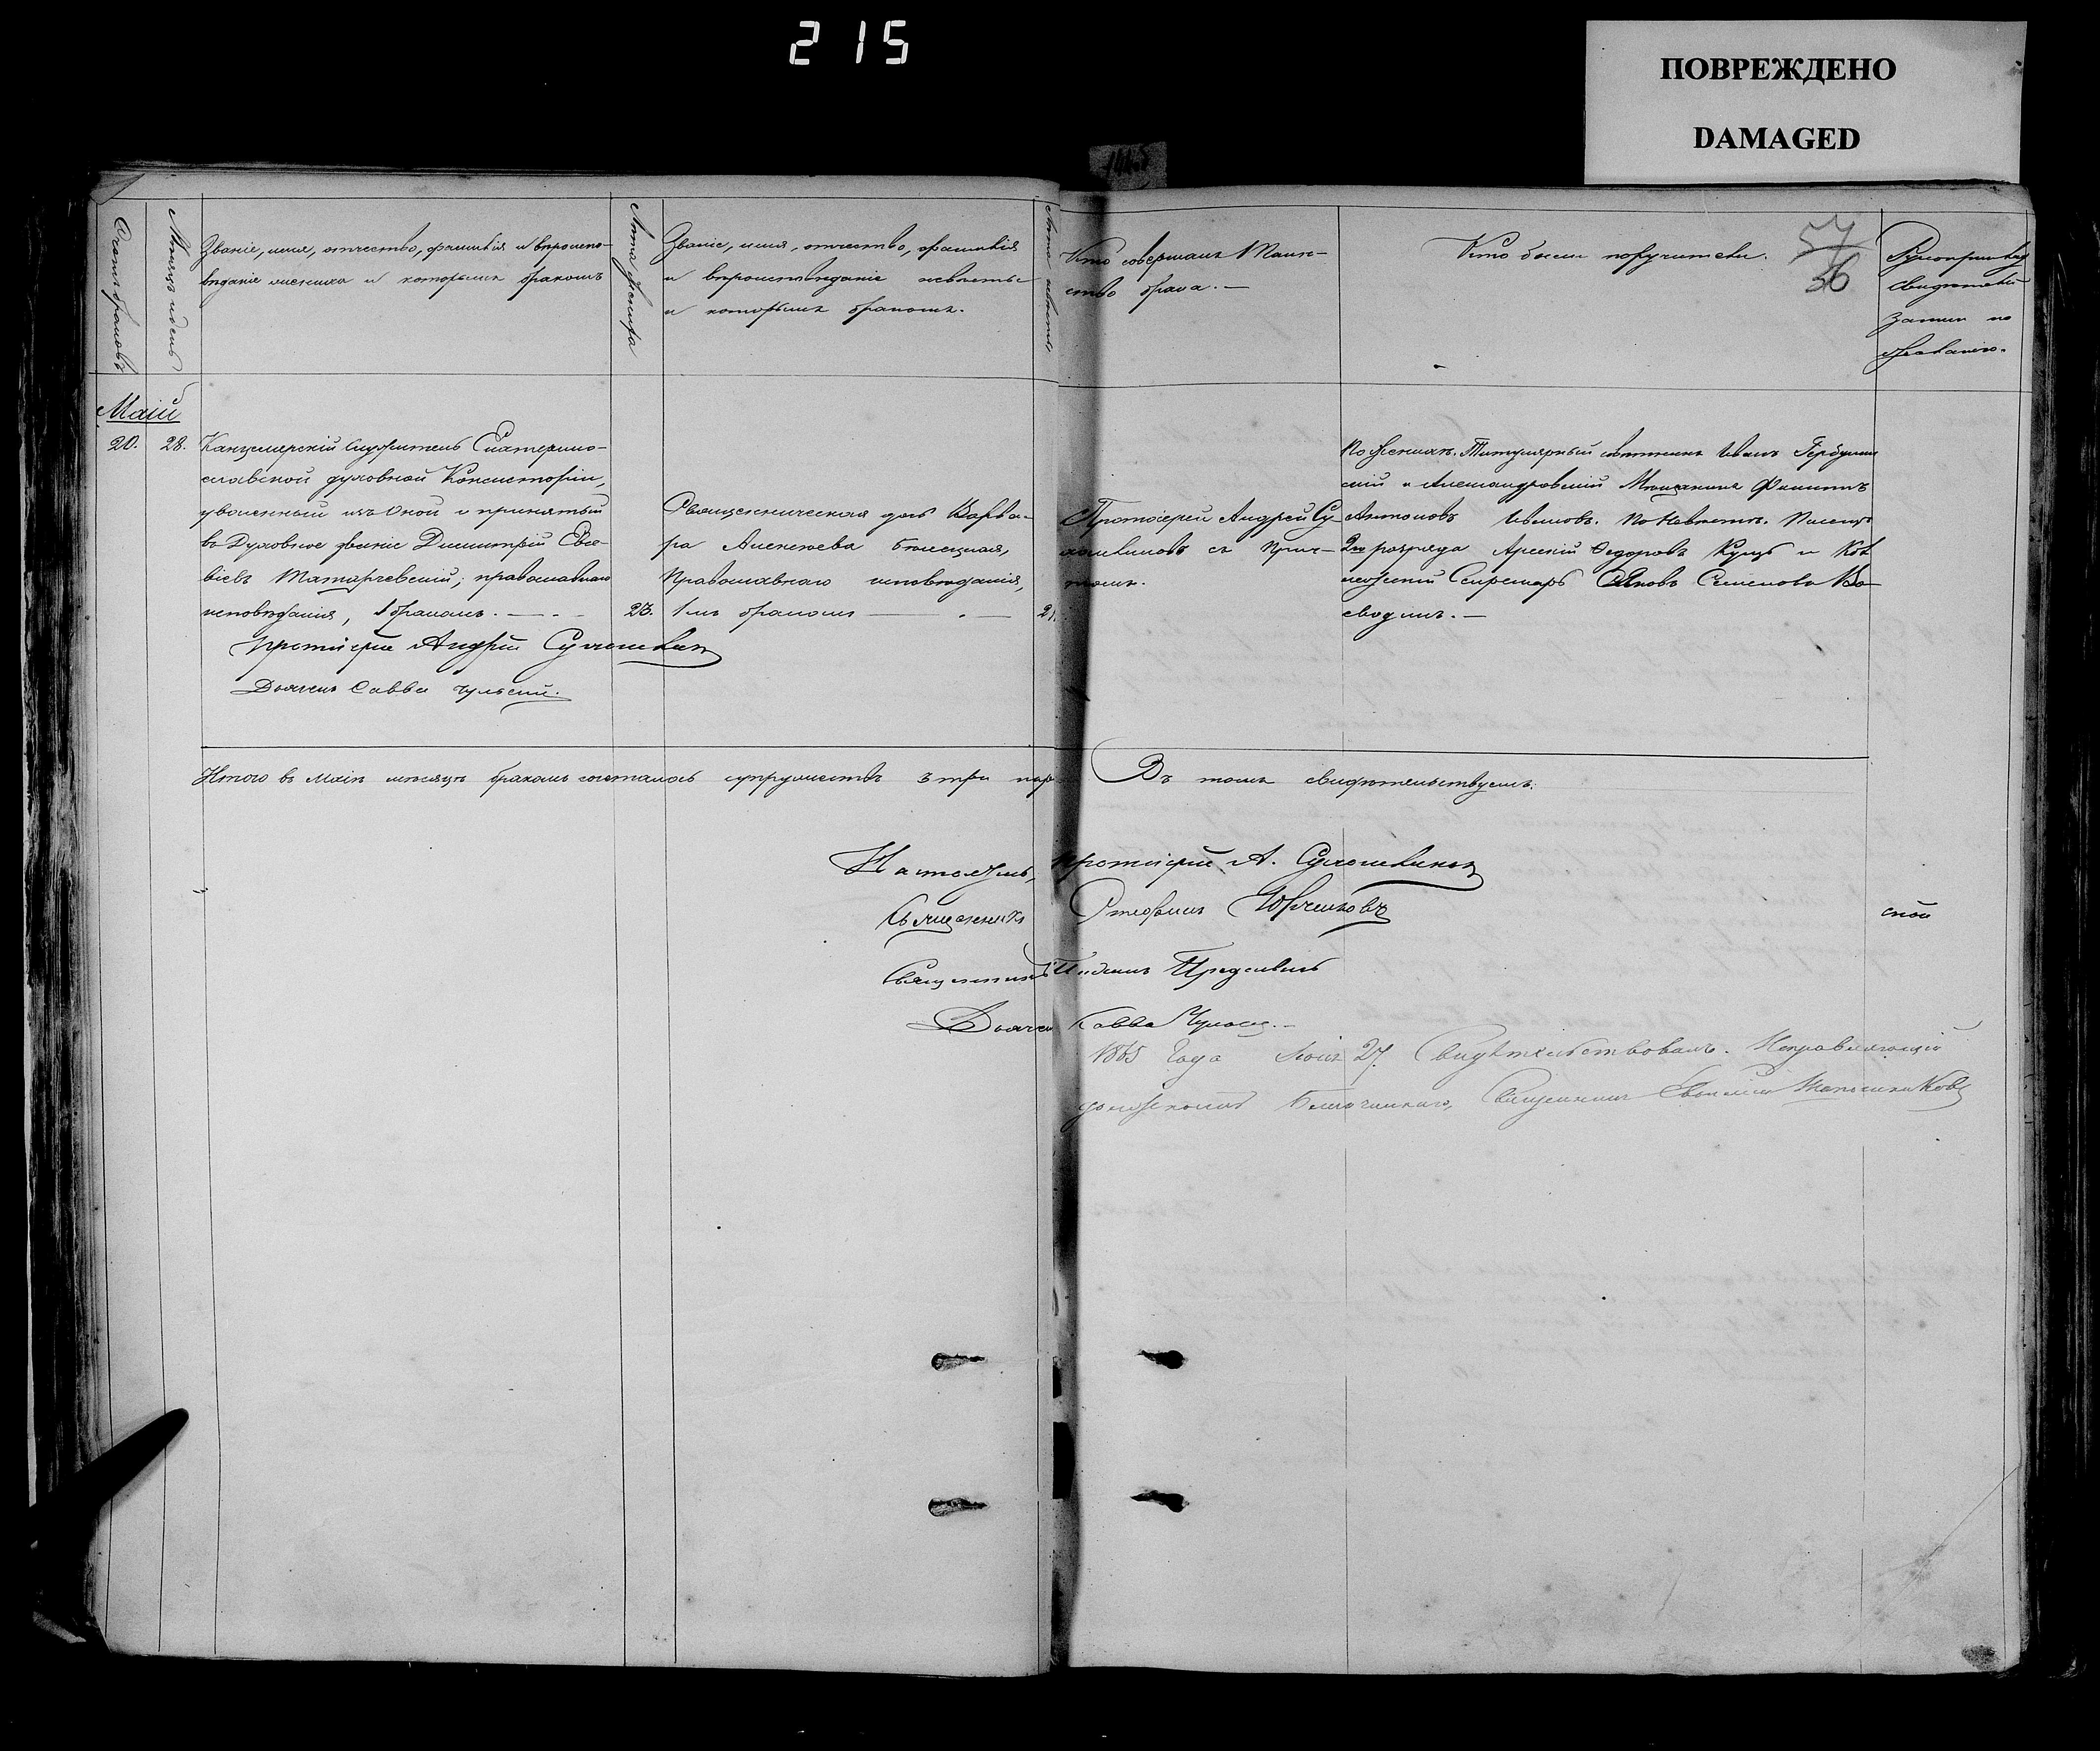 215
ПОВРЕЖДЕНО
DAMAGED
57
56
Счетъ браковъ
Мѣсяцъ и день
Званіе, имя, отчество, фамилія и вѣроиспо-
вѣданіе жениха и которымъ бракомъ
Лѣта жениха
Званіе, имя, отчество, фамилія
и вѣроисповѣданіе невѣсты
и которымъ бракомъ.
Лѣта невѣсты
Кто совершалъ Таин-
ство брака.
Кто были поручители.
Рукоприклад
свидѣтелей
записи по
желанію.
Маій
20.
28.
Канцелярскій служитель Екатерино-
славской духовной Консисторіи,
уволенный изъ оной и принятый
въ Духовное званіе Димитрій Евѳ-
віевъ Татарчевскій; православнаго
исповѣданія, 1 бракомъ.
23.
Священническая дочь Варва-
ра Алексѣева Бѣлецкая,
Православнаго исповѣданія,
1мъ бракомъ
21.
Протоіерей Андрей Су-
хомлиновъ съ прич-
томъ.
По женихѣ. Титулярный совѣтникъ Иванъ
скій и Александровскій Мѣщанинъ Филиппъ
Антоновъ Ивановъ. По невѣстѣ. Писецъ
2го разряда Арсеній Ѳедоровъ Куцъ и Кол
лежскій Секретарь Яковъ Семеновъ Во-
еводинъ.
протоіерей Андрей Сухомлиновъ
Дьячекъ Савва Чульскій.
Итого въ Маіи мѣсяцѣ бракомъ сочеталось супружествъ 3 три пары
Въ томъ свидѣтельствуемъ:
Настоятель, протоіерей А. Сухомлиновъ
Священникъ Юрченковъ
Священникъ
Дьячекъ Савва
ской
1865 года Іюня 27. Свидѣтельствовалъ. Исправляющій
должность Благочиннаго, Священникъ